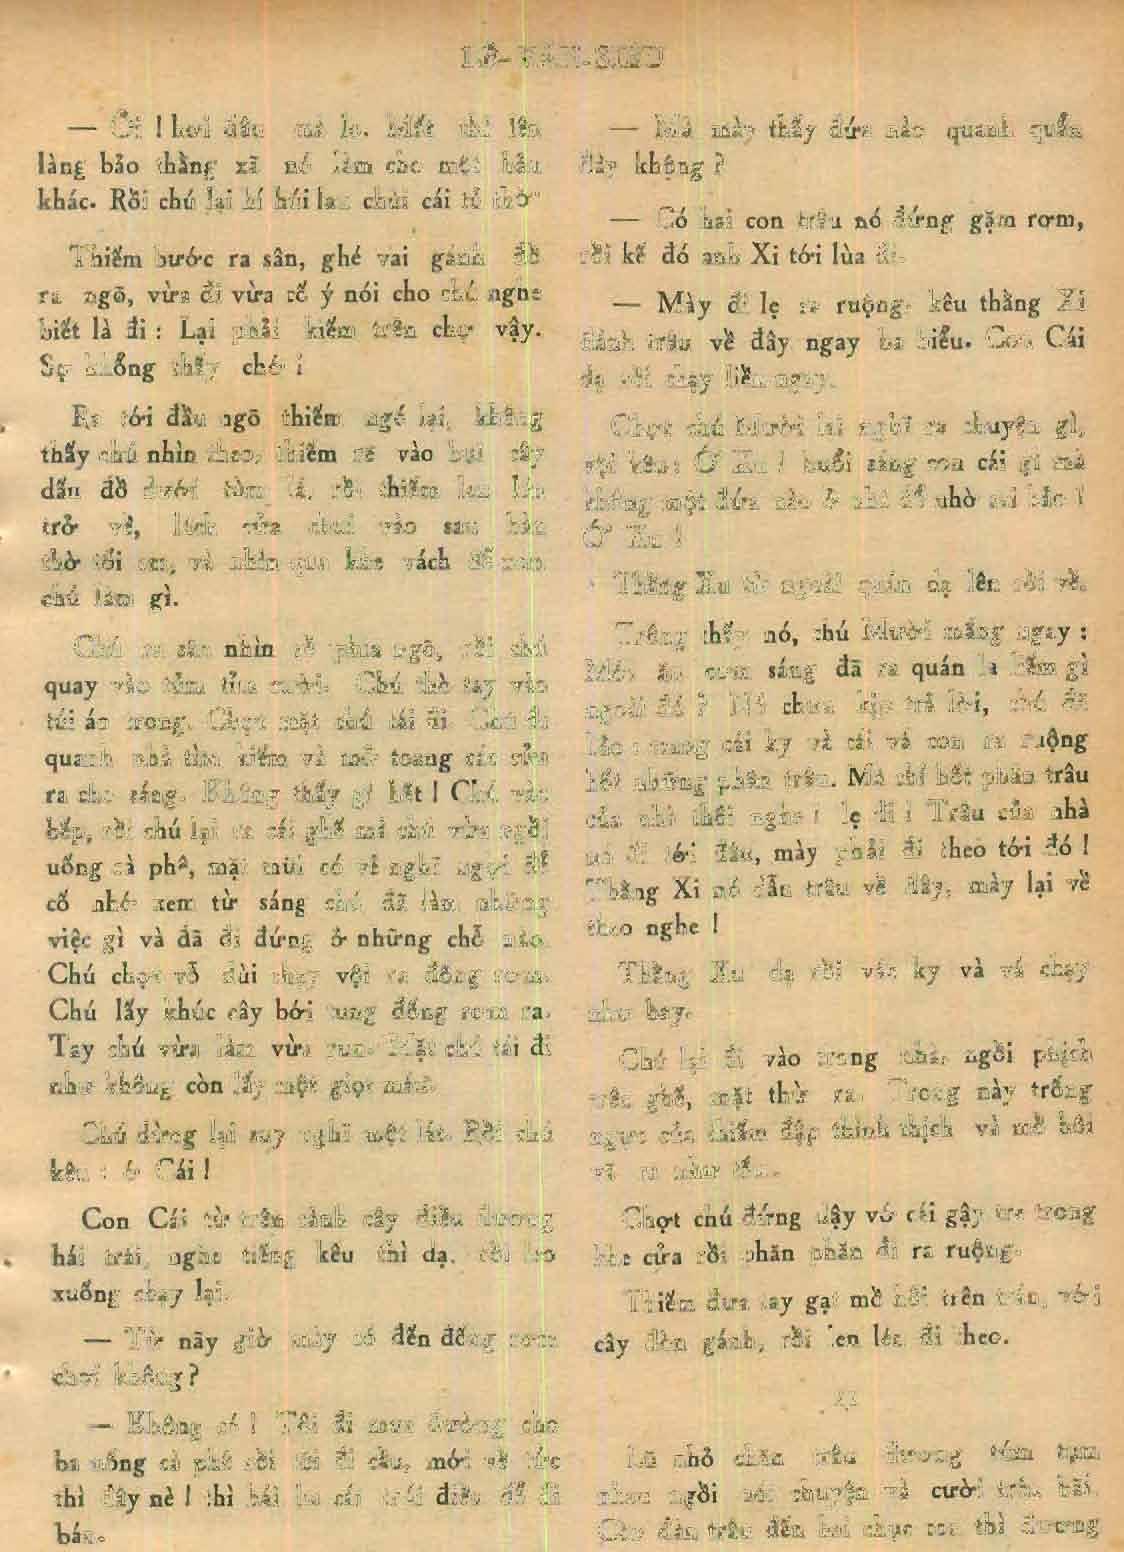 LÊ-VĂN-SIÊU
— Ối ! hơi đâu mà lo. Mất thì lên
làng bảo thằng xã nó làm cho một bầu
khác. Rồi chú lại hí húi lau chùi cái tủ thờ
Thiếm bước ra sân, ghé vai gánh đồ
ra ngõ, vừa đi vừa cố ý nói cho chú nghe
biết là đi : Lại phải kiếm trên chợ vậy.
Sợ không thấy chớ !
Ra tới đầu ngõ thiếm ngó lại, không
thấy chú nhìn theo, thiếm rẽ vào bụi cây
dấu đồ dưới tùm lá, rồi thiếm len lén
trở về, lách cửa chui vào sau bàn
thờ tối om, và nhìn qua khe vách để xem
chú làm gì.
Chú ra sân nhìn về phía ngõ, rồi chú
quay vào tủm tỉm cười. Chú thò tay vào
túi áo trong. Chợt mặt chú tái đi. Chú đi
quanh nhà tìm kiếm và mở toang các cửa
ra cho sáng. Không thấy gì hết ! Chú vào
bếp, rồi chú lại ra cái ghế mà chú vừa ngồi
uống cà phê, mặt mũi có vẻ nghĩ ngợi để
cố nhớ xem từ sáng chú đã làm những
việc gì và đã đi đứng ở những chỗ nào.
Chú chợt vỗ đùi chạy vội ra đống rơm.
Chú lấy khúc cây bới tung đống rơm ra.
Tay chú vừa làm vừa run. Mặt chú tái đi
như không còn lấy một giọt máu.
Chú dừng lại suy nghĩ một lát. Rồi chú
kêu : ớ Cái !
Con Cái từ trên cành cây điều đương
hái trái, nghe tiếng kêu thì dạ, rồi leo
xuống chạy lại.
— Từ nãy giờ mày có đến đống rơm
chơi không ?
— Không có ! Tôi đi mua đường cho
ba uống cà phê rồi tôi đi cầu, mới về tức
thì đây nè ! thì hái ba cái trái điều để đi
bán.
— Mà mày thấy đứa nào quanh quẩn
đây không ?
— Có hai con trâu nó đứng gặm rơm,
rồi kế đó anh Xi tới lùa đi.
— Mày đi lẹ ra ruộng kêu thằng Xi
đánh trâu về đây ngay ba biểu. Con Cái
dạ rồi chạy liền ngay.
Chợt chú Mười lại nghĩ ra chuyện gì,
vội kêu : Ớ Xu ! buổi sáng con cái gì mà
không một đứa nào ở nhà để nhờ sai bảo !
Ớ Xu !
Thằng Xu từ ngoài quán dạ lên rồi về.
Trông thấy nó, chú Mười mắng ngay :
Mới ăn cơm sáng đã ra quán la hãm gì
ngoài đó ? Nó chưa kịp trả lời, chú đã
bảo : mang cái ky và cái vá con ra ruộng
hốt những phân trâu. Mà chỉ hốt phân trâu
của nhà thôi nghe ! lẹ đi ! Trâu của nhà
nó đi tới đâu, mày phải đi theo tới đó !
Thằng Xi nó dẫn trâu về đây, mày lại về
theo nghe !
Thằng Xu dạ rồi vác ky và vá chạy
như bay.
Chú lại đi vào trong nhà, ngồi phịch
trên ghế, mặt thừ ra. Trong này trống
ngực của thiếm đập thình thịch và mồ hôi
vã ra như tắm.
Chợt chú đứng dậy vớ cái gậy tre trong
khe cửa rồi phăn phăn đi ra ruộng.
Thiếm đưa tay gạt mồ hôi trên trán, với
cây đòn gánh, rồi len lén đi theo.
Lũ nhỏ chăn trâu đương túm tụm
nhau ngồi nói chuyện và cười trên bãi.
Còn đàn trâu đến hai chục con thì đương